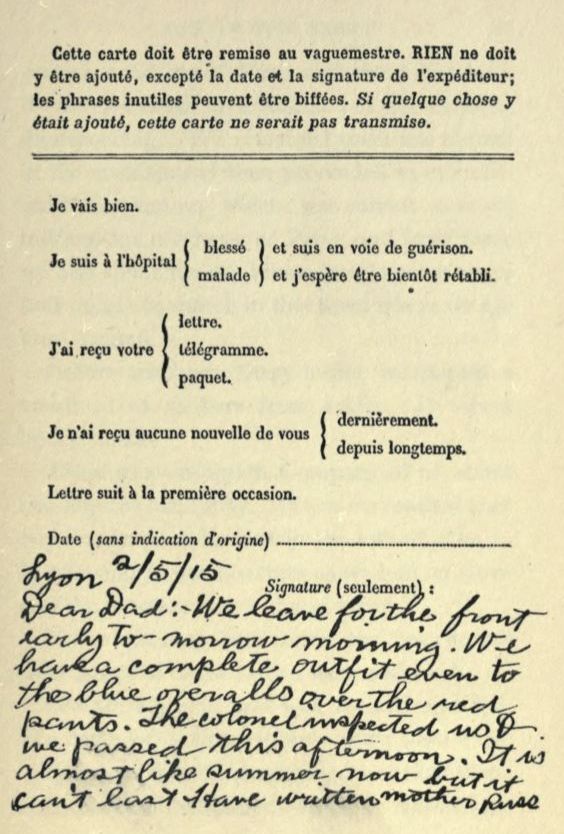 Cette carte doit être remise au vaguemestre. RIEN ne doit
y être ajouté, excepté la date et la signature de l'expéditeur;
les phrases inutiles peuvent être biffées. Si quelque chose y
était ajouté, cette carte ne serait pas transmise.
Je vais bien.
Je suis à l'hôpital { blessé } et suis en voie de guérison.
malade } et j'espère être bientôt rétabli.
J'ai reçu votre { lettre.
télégramme.
paquet.
Je n'ai reçu aucune nouvelle de vous { dernièrement.
depuis longtemps.
Lettre suit à la première occasion.
Date (sans indication d'origine)
Lyon 2/5/15
Signature (seulement) :
Dear Dad:- We leave for the front
early to-morrow morning. We
have a complete outfit even to
the blue overalls over the red
pants. The colonel inspected us &
we passed this afternoon. It is
almost like summer now but it
can't last Have written mother Russ